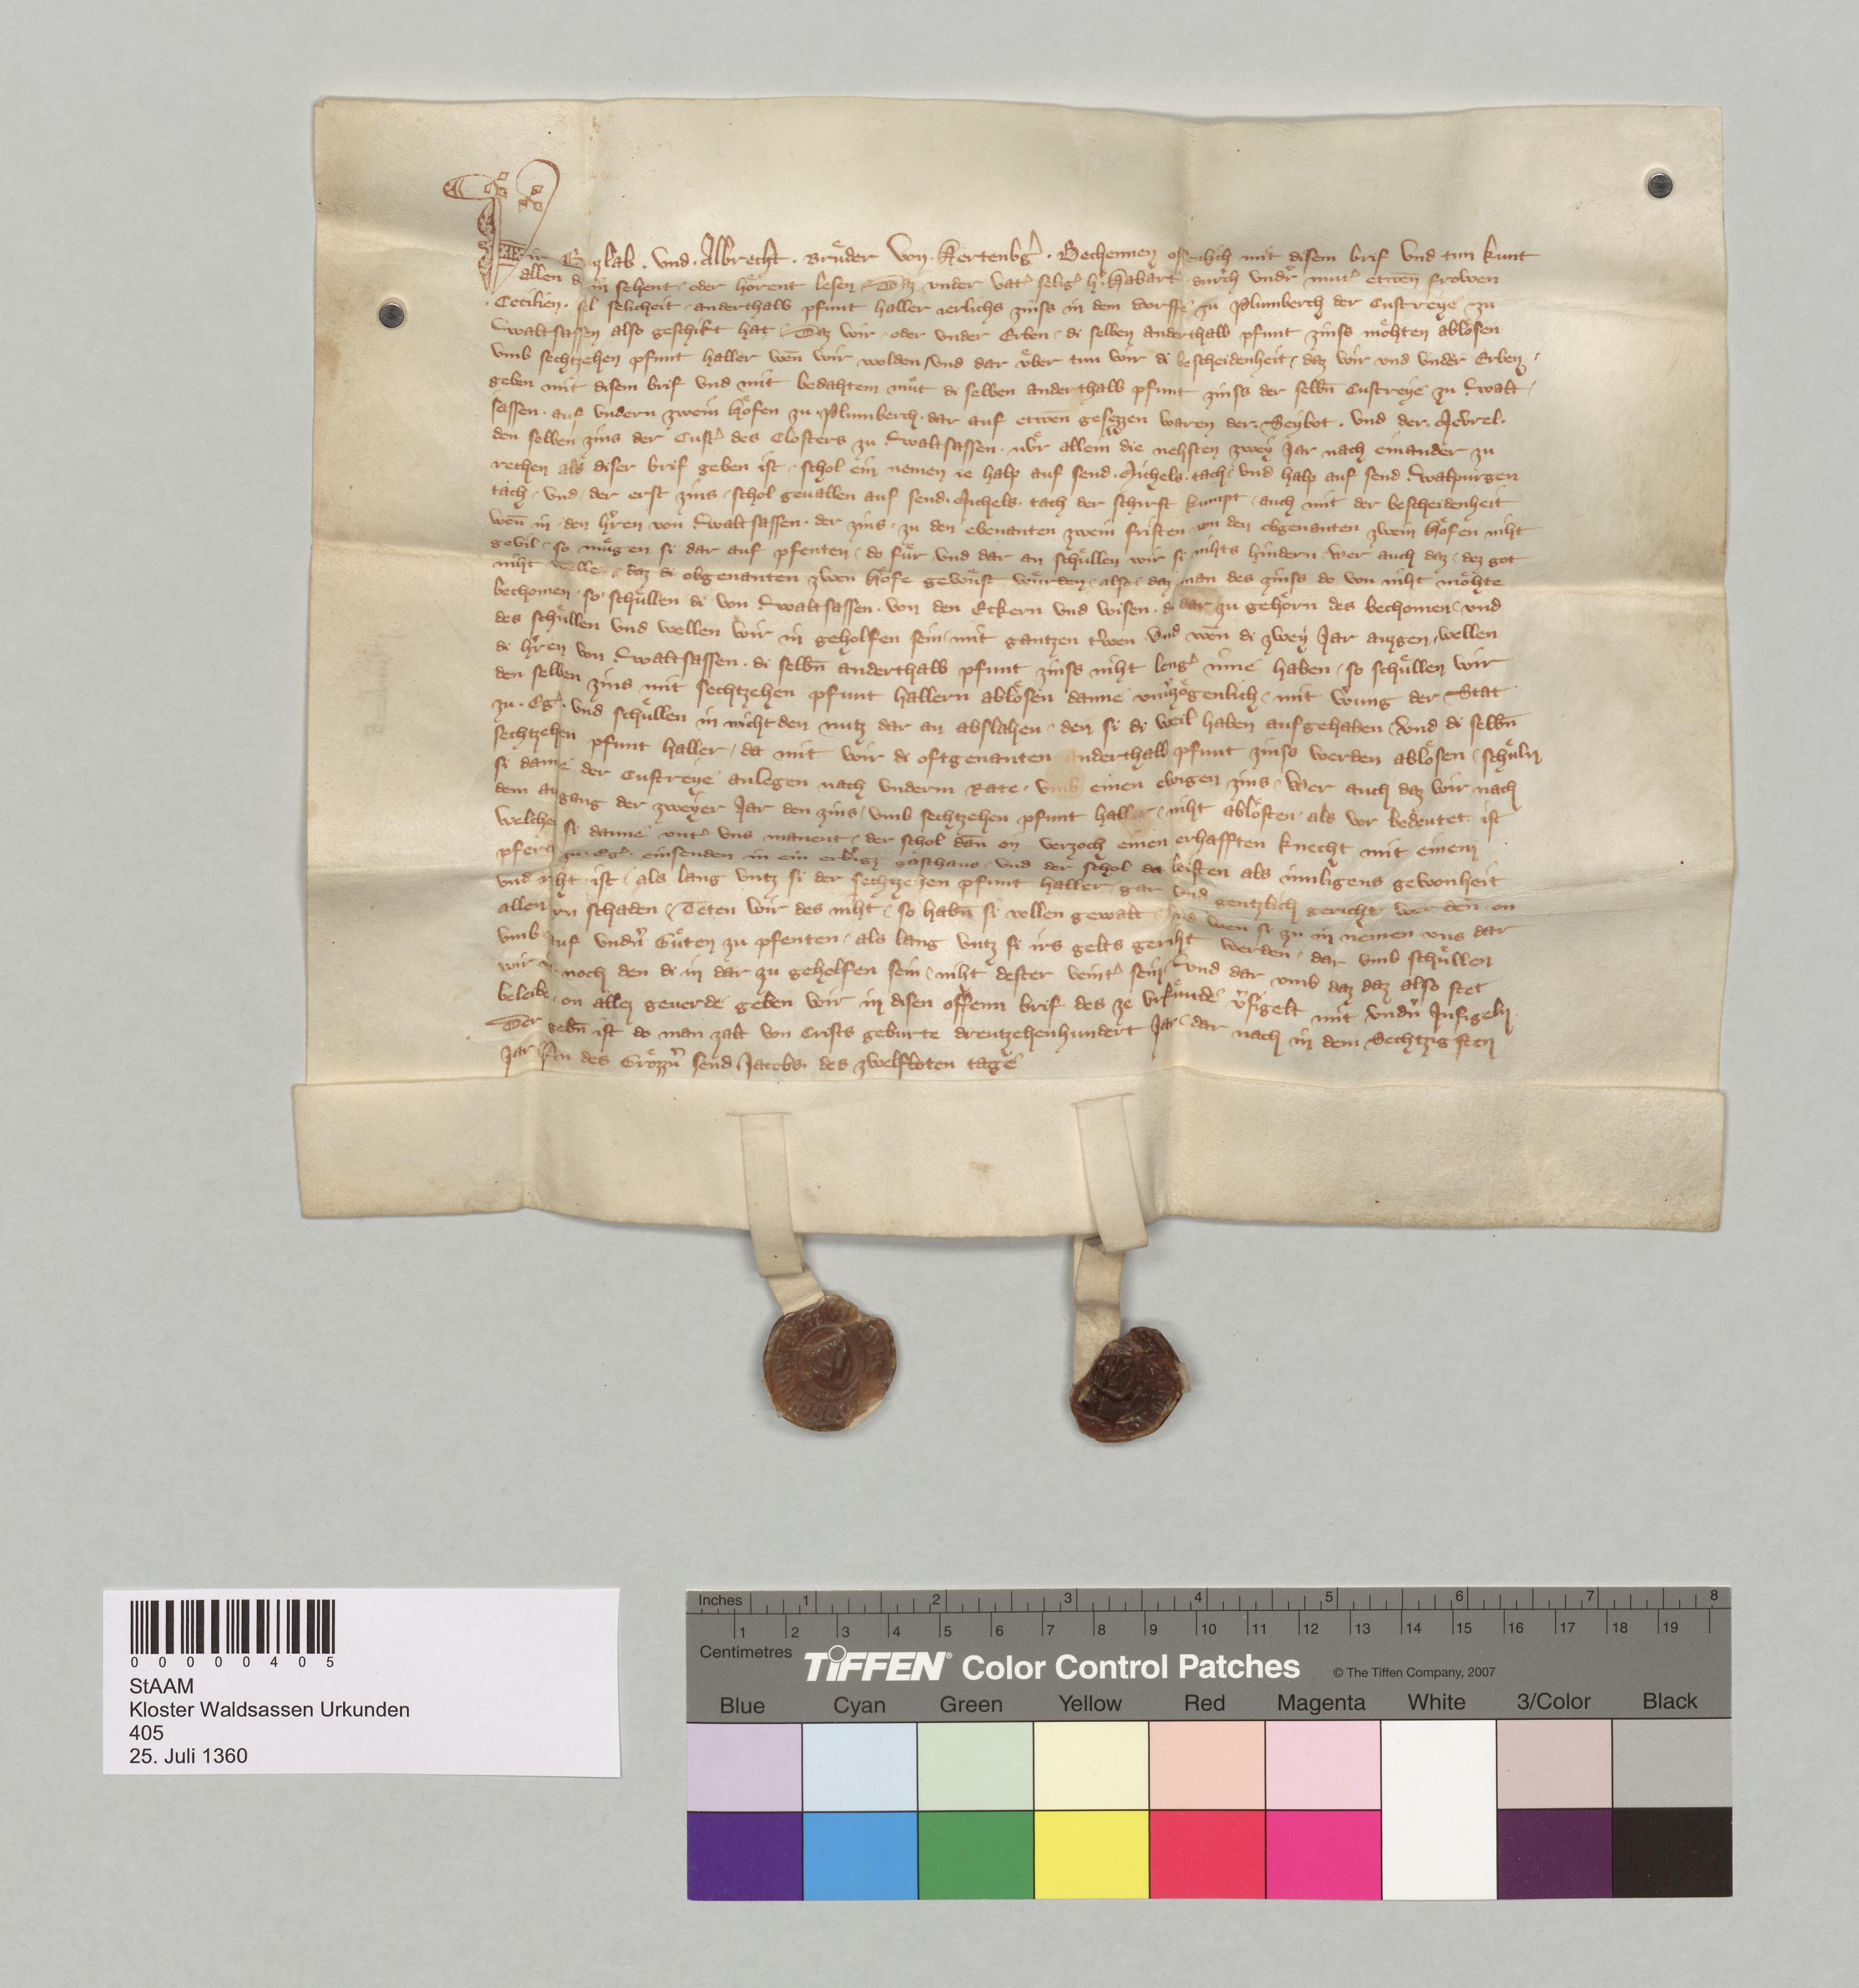 Wir Gylab . Vnd . Albrecht . Brůder Von . Hertenbg̉ . Bechennen offenlich mit disem brif Vnd tun kunt
allen di in sehent oder hőrent lesen Daz vnder vat̉ selig̉ h̉ Habart durch vndr̉ mut̉ etwen̄ frowen
Cecilien . sel selicheit anderthalb pfunt haller ierlichs zinss in dem dorffe zu Plumberch der Custreye zu
Waltsassen also geschikt hat Daz wir oder vnder Erben di selben anderthalb pfunt zinss mőhten ablősen
vmb sechtzehen pfunt haller wen̄ wir wolden Vnd dar űber tun wir di bescheidenheit daz wir vnd vnder Erben
geben mit disem brif vnd mit bedahtem můt di selben anderthalb pfunt zinss der selbn̄ Custreye zu Walt
sassen . auf vndern zwein hőfen zu Plumberch . dar auf etwen̄ gesezzen waren der . Seybot . vnd der .
den selben zins der Cust̉ des Closters zu Waltsassen . nűr allein die nehsten zwey Jar nach einander zu
rechen als diser brif geben ist schol ein nemen ie halp auf send . Michels . tach vnd halp auf send . Walpurgen
tach vnd der erst zins schol geuallen auf send . Michels . tach der schirst kumpt auch mit der bescheidenheit
wen̄ in den hr̉en von Waltsassen . der zins zu den ebenanten zwein fristen von den obgenanten zwein hőfen niht
gevil so műgen si dar auf pfenten do fűr vnd dar an schűllen wir si nihts hindern Wer auch daz dez got
niht welle daz di obgenanten zwen hőfe gewűst wűrden also daz man des zinss do von niht mőhte
bechomen so schűllen di von Waltsassen . von den Eckern vnd wisen di dar zu gehőrn des bechomen vnd
des schűllen vnd wellen wir in geholfen sein mit gantzen tr̉wen Vnd wen̄ di zwey Jar auzgen wellen
di hr̉en von Waltsassen . di selbn̄ anderthalb pfunt zinss niht leng̉ inne haben so schűllen wir
den selben zins mit sechtzehen pfunt hallern ablősen danne vnu̓zőgenlich mit wrung der Stat
zu . Eg̉ . vnd schűllen in nicht den nutz dar an abslahen den si di weil haben aufgehaben Vnd di selbn̄
sechtzehen pfunt haller da mit wir di oftgenanten anderthalb pfunt zinss werden ablősen schűln
si danne der Custreye anlegen nach vnderm Rate vmb einen ewigen zins Wer auch daz wir nach
dem auzgang der zweyer Jar den zins vmb sechtzehen pfunt haller niht ablősten als vor bedeutet ist
welchen si danne vnt̉ vns manent der schol dan̄ on verzoch einen erhafften knecht mit einem
pferd zu . Eg̉ . einsenden in ein erbergz gasthaus vnd der schol da leisten als inniligens gewonheit
vnd reht ist als lang vntz si der sechtzehen pfunt haller gar vnd gentzlich gericht werden on
allen irn schaden Teten wir des niht so habn̄ si vollen gewalt vnd wen si zu in nemen vns dar
vmb auf vndn̉ Gűten zu pfenten als lang vntz si irs gelts geriht werden dar vmb schűllen
wir in noch den di in dar zu geholfen sein niht dester veint̉ sein Vnd dar vmb daz daz also stet
beleibe on allez geuerde geben wir in disen offenn brif des ze vrkűnde v̉sigelt mit vndn̉ Jnsigeln
Der gebn̄ ist do man zalt von Crists geburte dreutzehenhundert Jar dar nach in dem Sechtzigsten
Jar An des Grőzzn̉ send Jacobs des zwelfboten tage
00000405
StAAM
Kloster Waldsassen Urkunden
405
25. Juli 1360
Inches 1 2 3 4 5 6 7 8
1 2 3 4 5 6 7 8 9 10 11 12 13 14 15 16 17 18 19
Centimetres
TIFFEN® Color Control Patches © The Tiffen Company, 2007
Blue Cyan Green Yellow Red Magenta White 3/Color Black